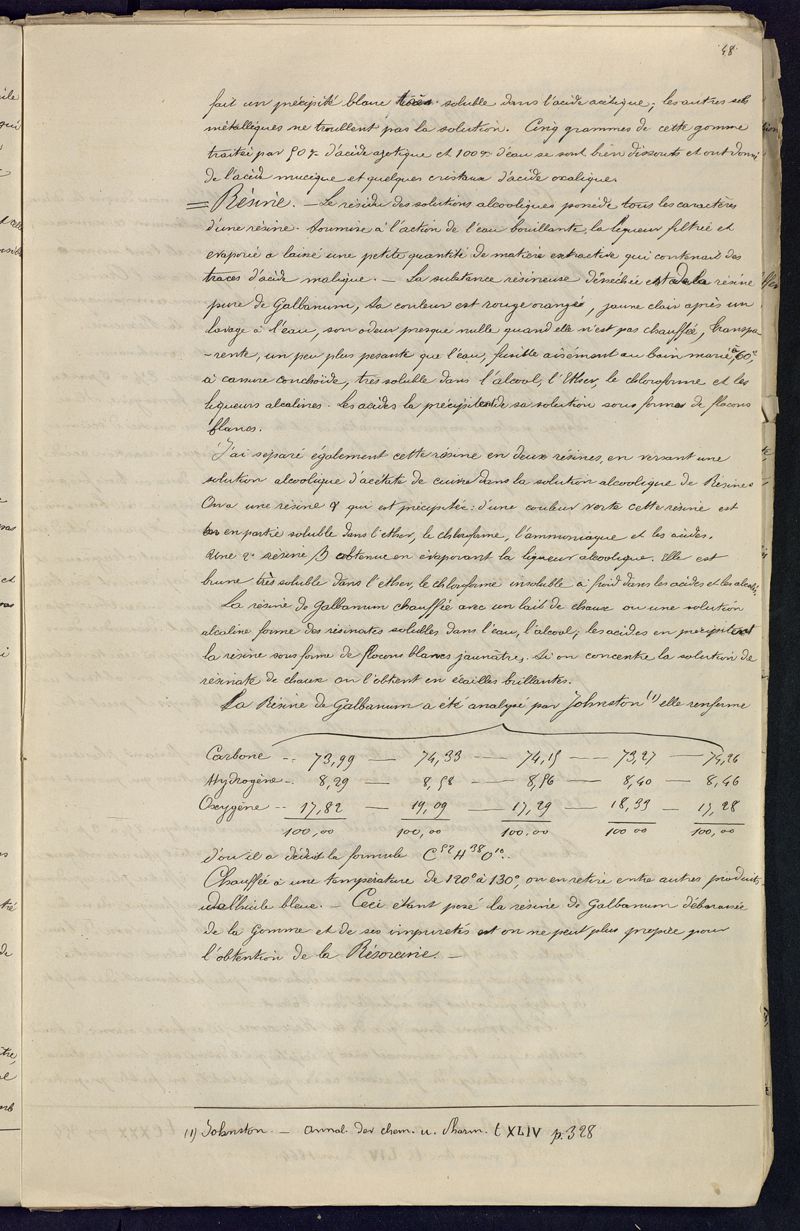 48
fait un précipité blanc très soluble dans l'acide acétique; les autres sels
métalliques ne troublent pas la solution. Cinq grammes de cette gomme
traitée par 50 gr d'acide azotique et 100 gr d'eau se sont bien dissouts et ont donné
de l'acide mucique et quelques cristaux d'acide oxalique.
= Résine. — Le résidu des solutions alcooliques possède tous les caractères
d'une résine. Soumise à l'action de l'eau bouillante, la liqueur filtrée et
evaporée a laissé une petite quantité de matière extractive qui contenait des
traces d'acide malique. — La substance résineuse desséchée est de la résine
pure de Galbanum, Sa couleur est rouge orangée, jaune clair après un
lavage à l'eau, son odeur presque nulle quand elle n'est pas chauffée, Transpa-
-rente, un peu plus pesante que l'eau, fusible aisément au bain marie, à 60°,
à cassure conchoïde, très soluble dans l'alcool, l'Ether, le chloroforme et les
liqueurs alcalines. Les acides la précipitent de sa solution sous forme de flocons
blancs.
J'ai séparé également cette résine en deux résines, en versant une
solution alcoolique d'acétate de cuivre dans la solution alcoolique de Résine
On a une résine α qui est précipitée: d'une couleur verte cette résine est
en partie soluble dans l'ether, le chloroforme, l'ammoniaque et les acides.
Une 2e résine β obtenue en évaporant la liqueur alcoolique. Elle est
brune très soluble dans l'ether, le chloroforme insoluble à froid dans les acides et les alcalis.
La résine de Galbanum chauffée avec un lait de chaux ou une solution
alcaline forme des résinates solubles dans l'eau, l'alcool; les acides en précipitent
la résine sous forme de flocons blancs jaunâtres. Si on concentre la solution de
résinate de chaux on l'obtient en écailles brillantes.
La Résine de Galbanum a été analysée par Johnston (1) elle renferme
Carbone -- 73,99 — 74,33 — 74,15 — 73,27 — 74,26
Hydrogène -- 8,29 — 8,58 — 8,56 — 8,40 — 8,46
Oxygène -- 17,82 — 19,09 — 17,29 — 18,33 — 17,28
100,00 100,00 100,00 100 00 100,00
d'ou il a déduit la formule C⁵²H³⁸O¹⁰..
Chauffée à une température de 120° à 130°, on en retire entre autres produits,
une huile bleue. — Ceci étant posé la résine de Galbanum débarassée
de la Gomme et de ses impuretés est on ne peut plus propice pour
l'obtention de la Résorcine. —
(1) Johnston. — Annal. der chem. u. Pharm. t XLIV p. 328